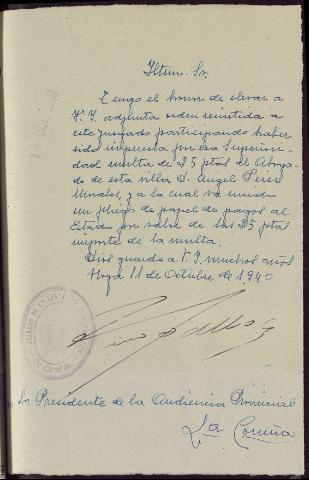 Iltmo. Sr.
Tengo el honor de elevar a
V.I. adjunta orden remitida a
este juzgado participando haber
sido impuesta por esa Superiori-
dad multa de 25 ptas al Aboga-
do de esta villa D. Angel Perez
Morales, y a la cual va unido
un pliego de papel de pagos al
Estado por valor de las 25 ptas
importe de la multa.
Dios guarde a V.I. muchos años
11 de Octubre de 1940
Sr Presidente de la Audiencia Provincial
La Coruña